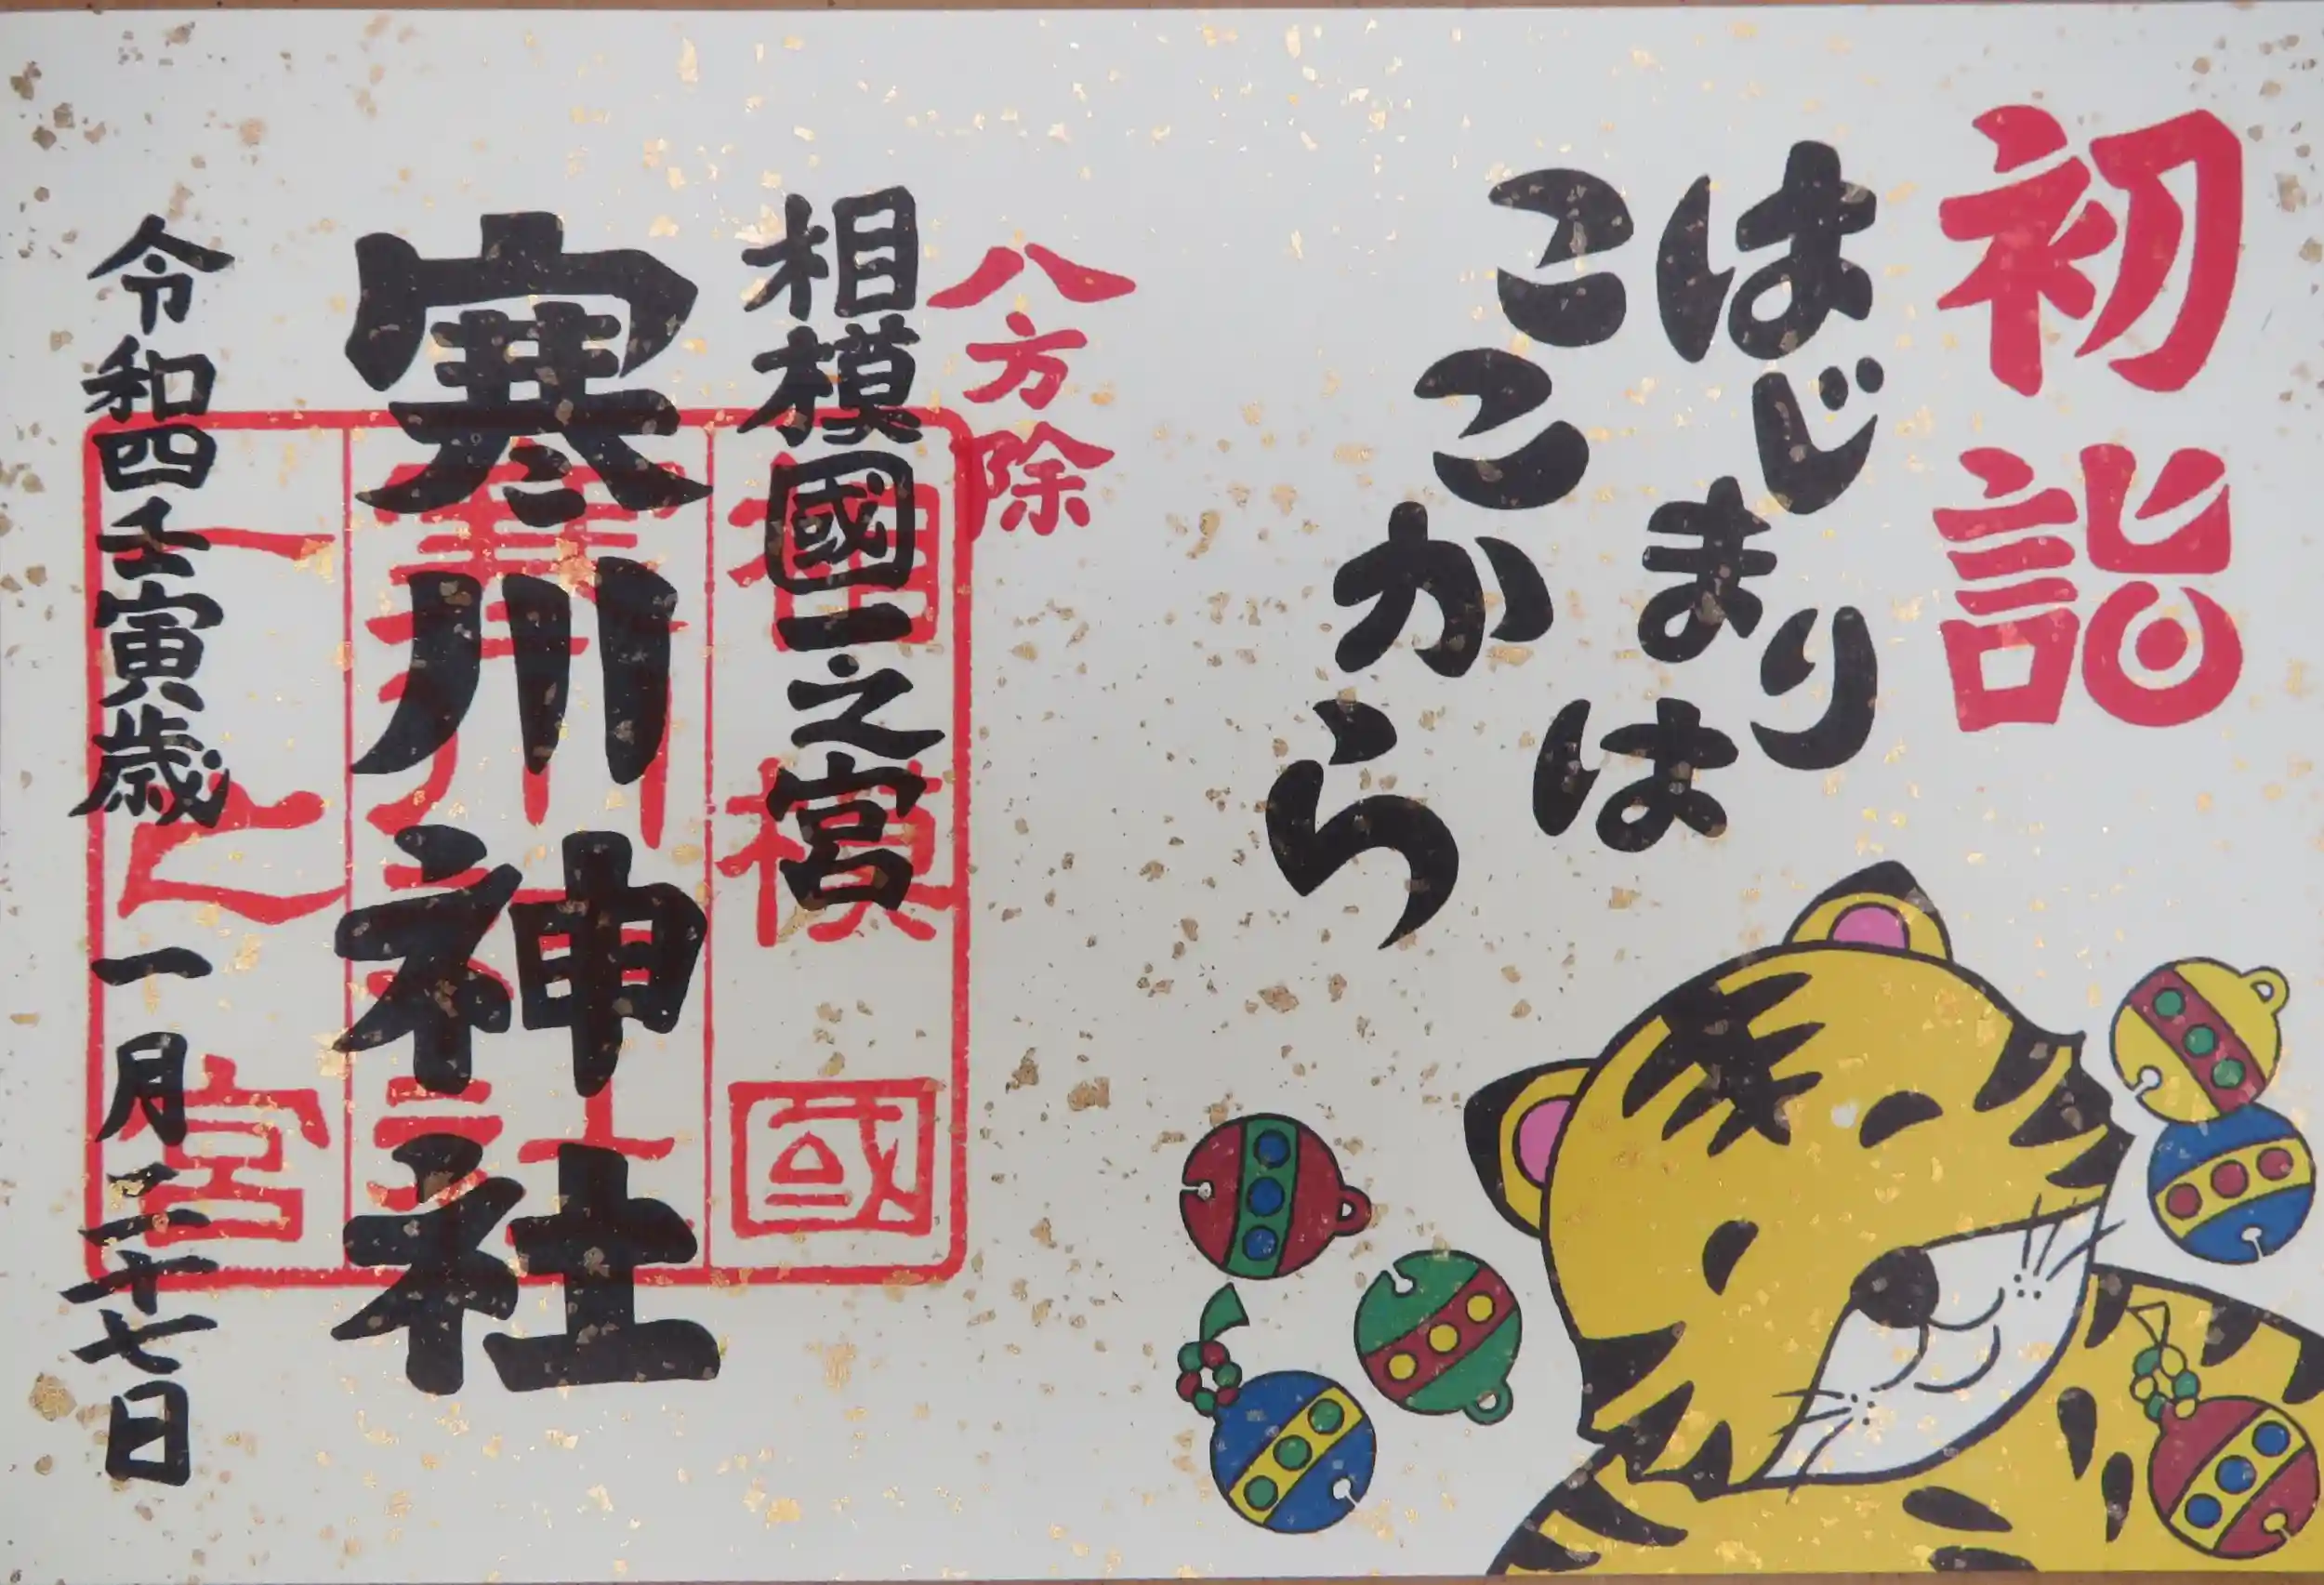 初詣
はじまりは
ここから
八方除
相模國一之宮
寒川神社
令和四壬寅歳 一月二十七日
相模國
寒川神社
一之宮